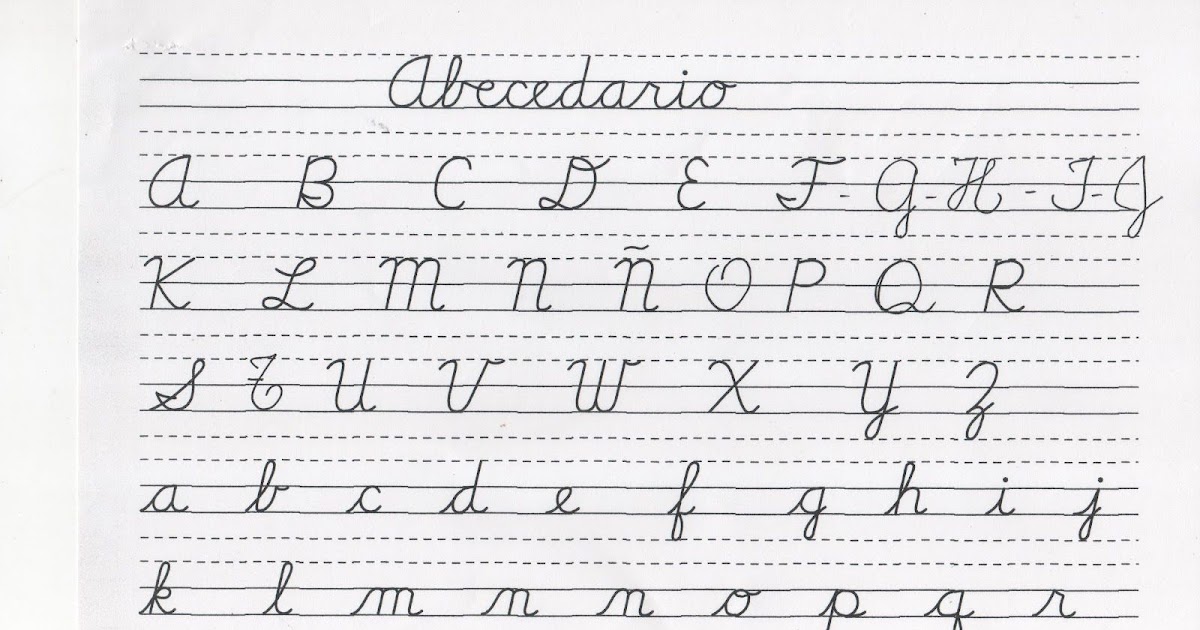 Abecedario
A B C D E F - G - H - I - J
K L M N Ñ O P Q R
S T U V W X Y Z
a b c d e f g h i j
k l m n n o p q r